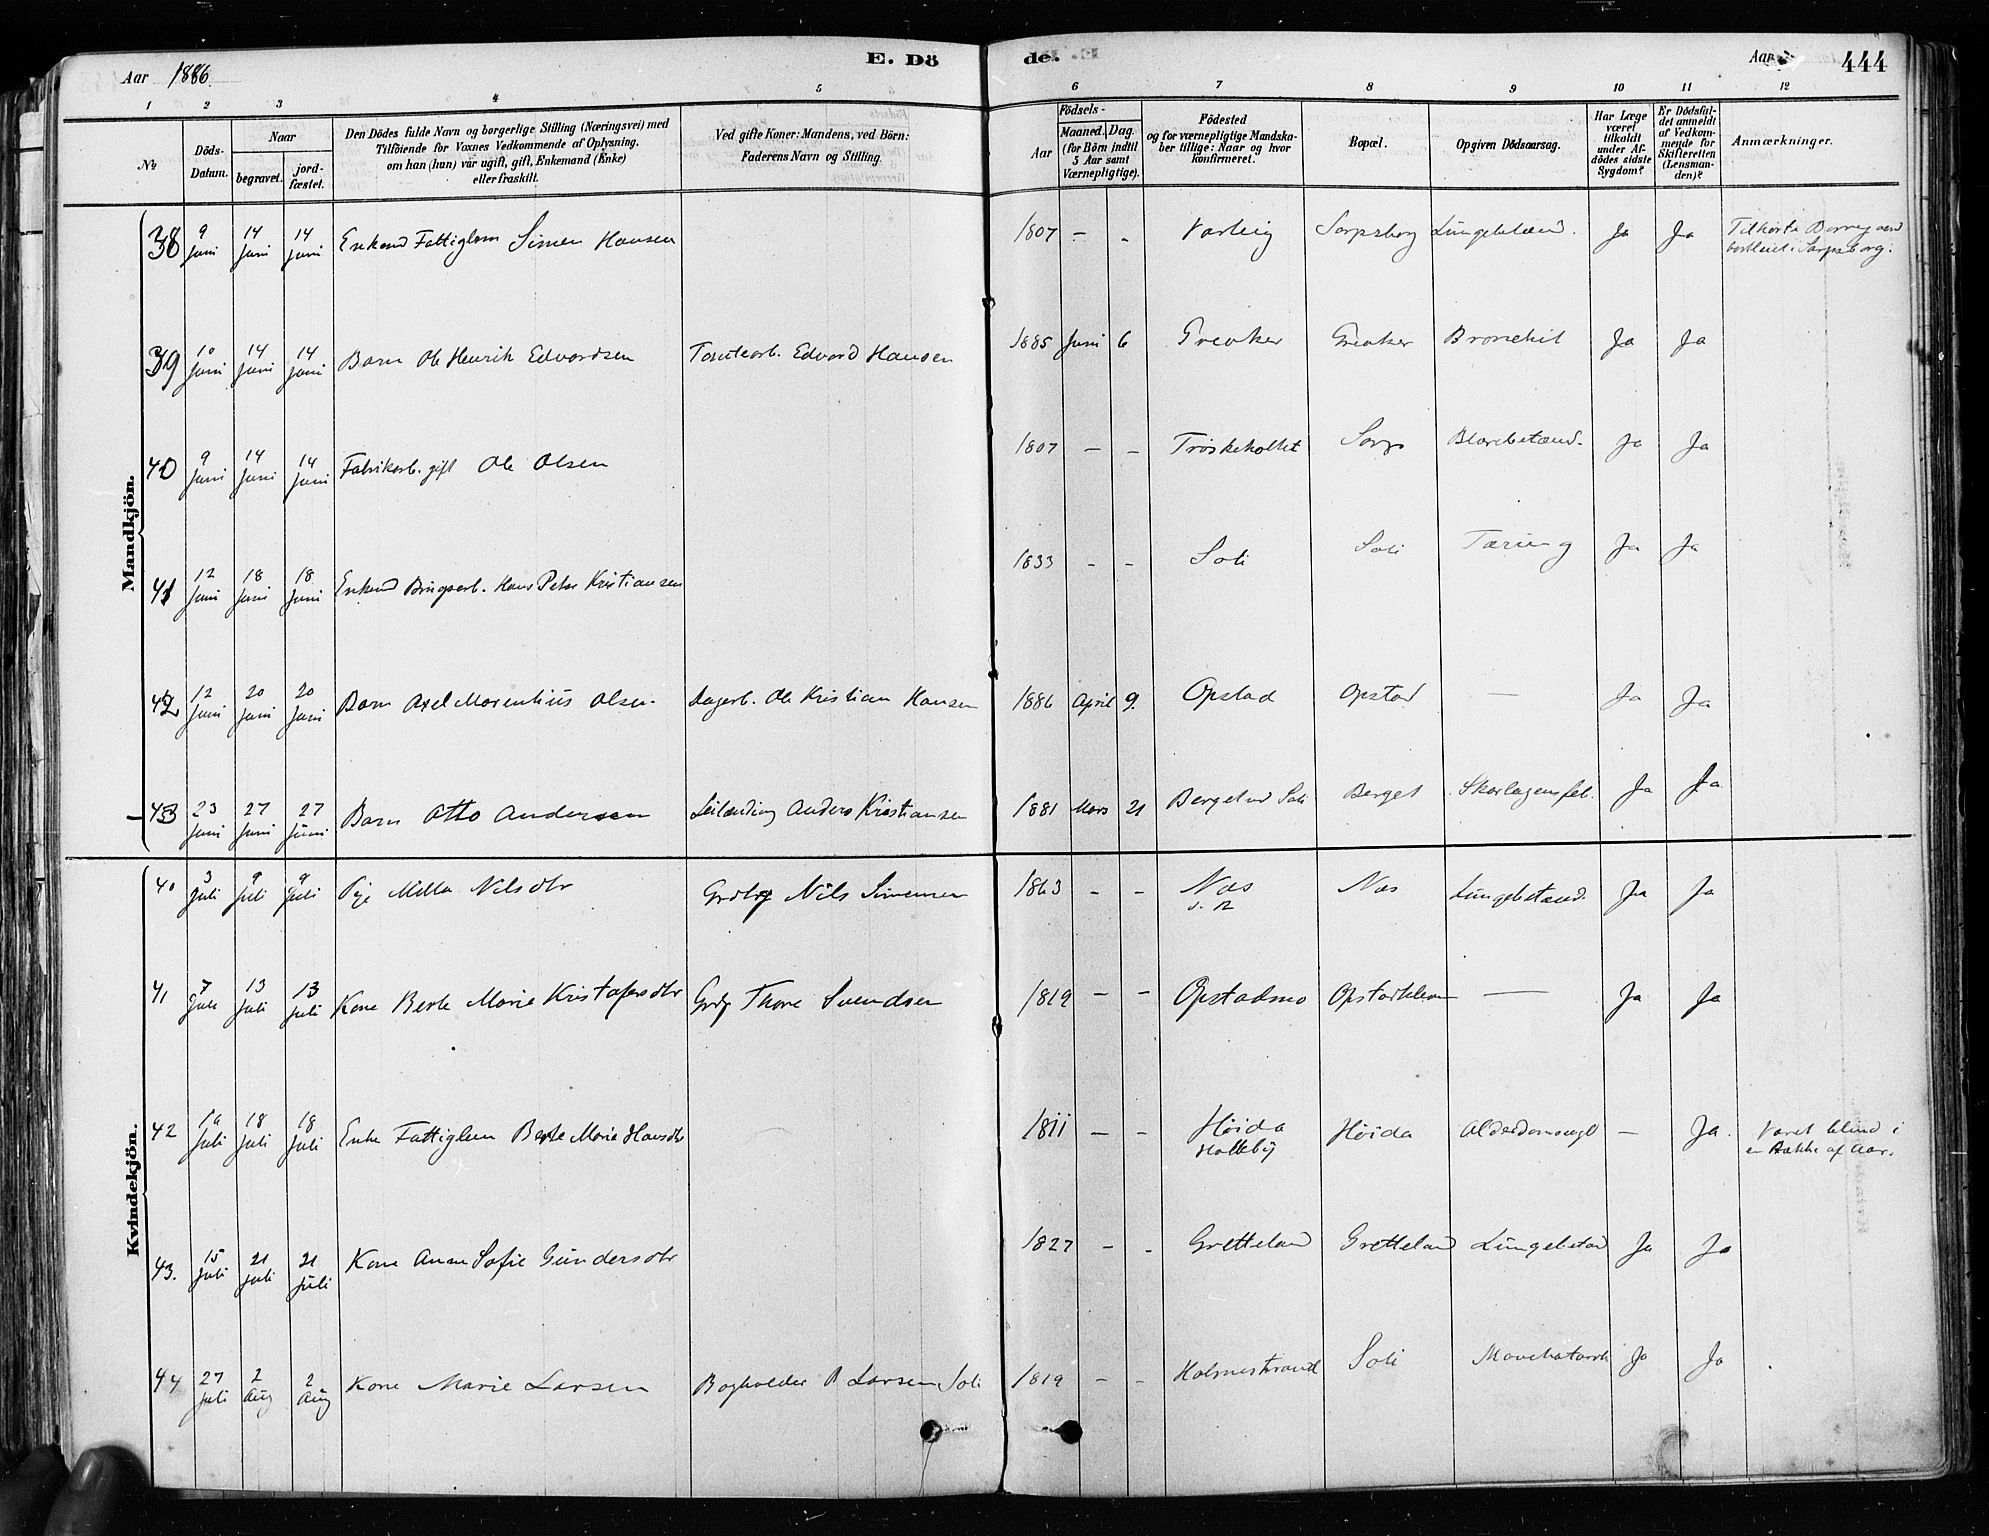 Aar 1886.
E. Dö
de.
Aar
444
1 2 3 4 5 6 7 8 9 10 11 12
No
Döds-Datum.
Naar
begravet.
jord-fæstet.
Den Dödes fulde Navn og borgerlige Stilling (Næringsvei) med
Tilföiende for Voxnes Vedkommende af Oplysning,
om han (hun) vär ugift, gift, Enkemand (Enke)
eller fraskilt.
Ved gifte Koner: Mandens, ved Börn:
Faderens Navn og Stilling.
Födsels-
Aar
Maaned. Dag.
(for Börn indtil
5 Aar samt
Værnepligtige).
Födested
og for værnepligtige Mandska-
ber tillige: Naar og hvor
konfirmeret.
Bopæl.
Opgiven Dödsaarsag.
Har Læge
været
tilkaldt
under Af-
dödes sidste
Sygdom?
Er Dödsfal-
det anmeldt
af Vedkom-
mende for
Skifteretten
(Lensman-
den)?
Anmærkninger.
Mandkjön.
38 9 Juni 14 Juni 14 Juni Enkemd Fattiglem Simen Hansen 1807 - - Varteig Sarpsborg Lungebetænd. Ja Ja Tilhørte Borregaard
bortleiet i Sarpsborg.
39 10 Juni 14 Juni 14 Juni Barn Ole Henrik Edvardsen Tomtearb. Edvard Hansen 1885 Juni 6 Greaker Greaker Bronchit Ja Ja
40 9 Juni 14 Juni 14 Juni Fabrikarb. gift Ole Olsen 1807 - - Trøskeholtet Sarps Blærebetænd. Ja Ja
41 12 Juni 18 Juni 18 Juni Enkemd Brugsarb. Hans Peter Kristiansen 1833 - - Soli Soli Tæring Ja Ja
42 12 Juni 20 Juni 20 Juni Barn Axel Marentius Olsen Dagarb. Ole Kristian Hansen 1886 April 9. Opstad Opstad — Ja Ja
43 23 Juni 27 Juni 27 Juni Barn Otto Andersen Leilænding Anders Kristiansen 1881 Mars 21 Berget vd Soli Berget Skarlagensfeb. Ja Ja
Kvindekjön.
40 3 Juli 9 Juli 9 Juli Pige Milla Nilsdtr Grdbr Nils Simensen 1863 - - Næs Næs Lungebetænd. Ja Ja
41 7 Juli 13 Juli 13 Juli Kone Berte Marie Kristofersdtr Grdbr Thore Svendsen 1819 - - Opstadmo — Ja Ja
42 Juli 18 Juli 18 Juli Enke Fattiglem Berte Marie Hansdtr 1811 - - Høida
Holleby Høida — Ja. Været blind i
en Række af Aar.
43. 15 Juli 21 Juli 21 Juli Kone Anne Sofie Gundersdtr 1827 - - Gretteland Gretteland Lungebetænd Ja Ja
44 27 Juli 2 Aug 2 Aug Kone Marie Larsen Bogholder P Larsen Soli 1819 - - Holmestrand Soli Mavekatarrh Ja Ja